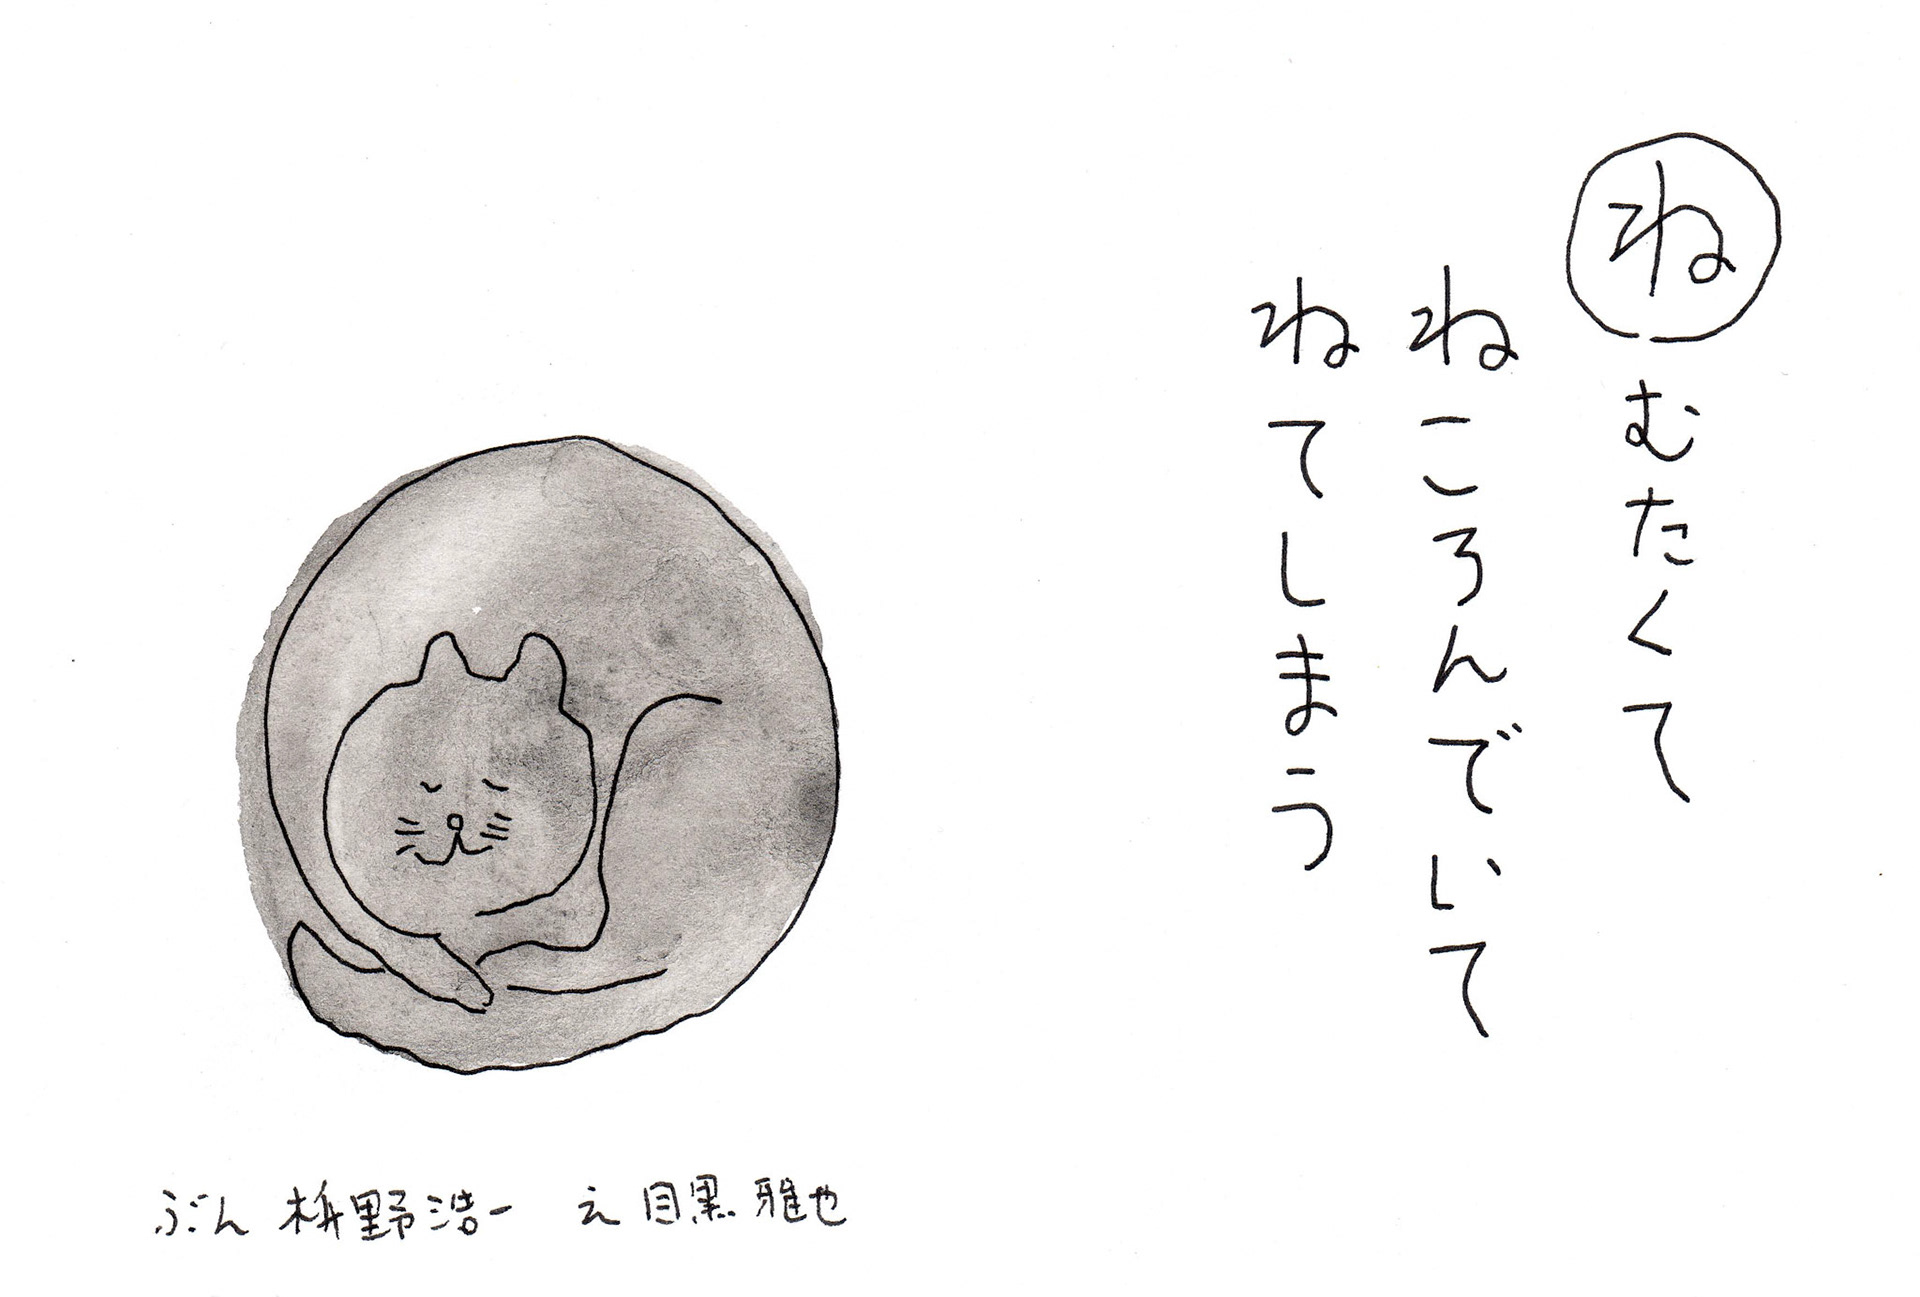 ねむたくて
ねころんでいて
ねてしまう
ぶん 枡野浩一 え 目黒雅也